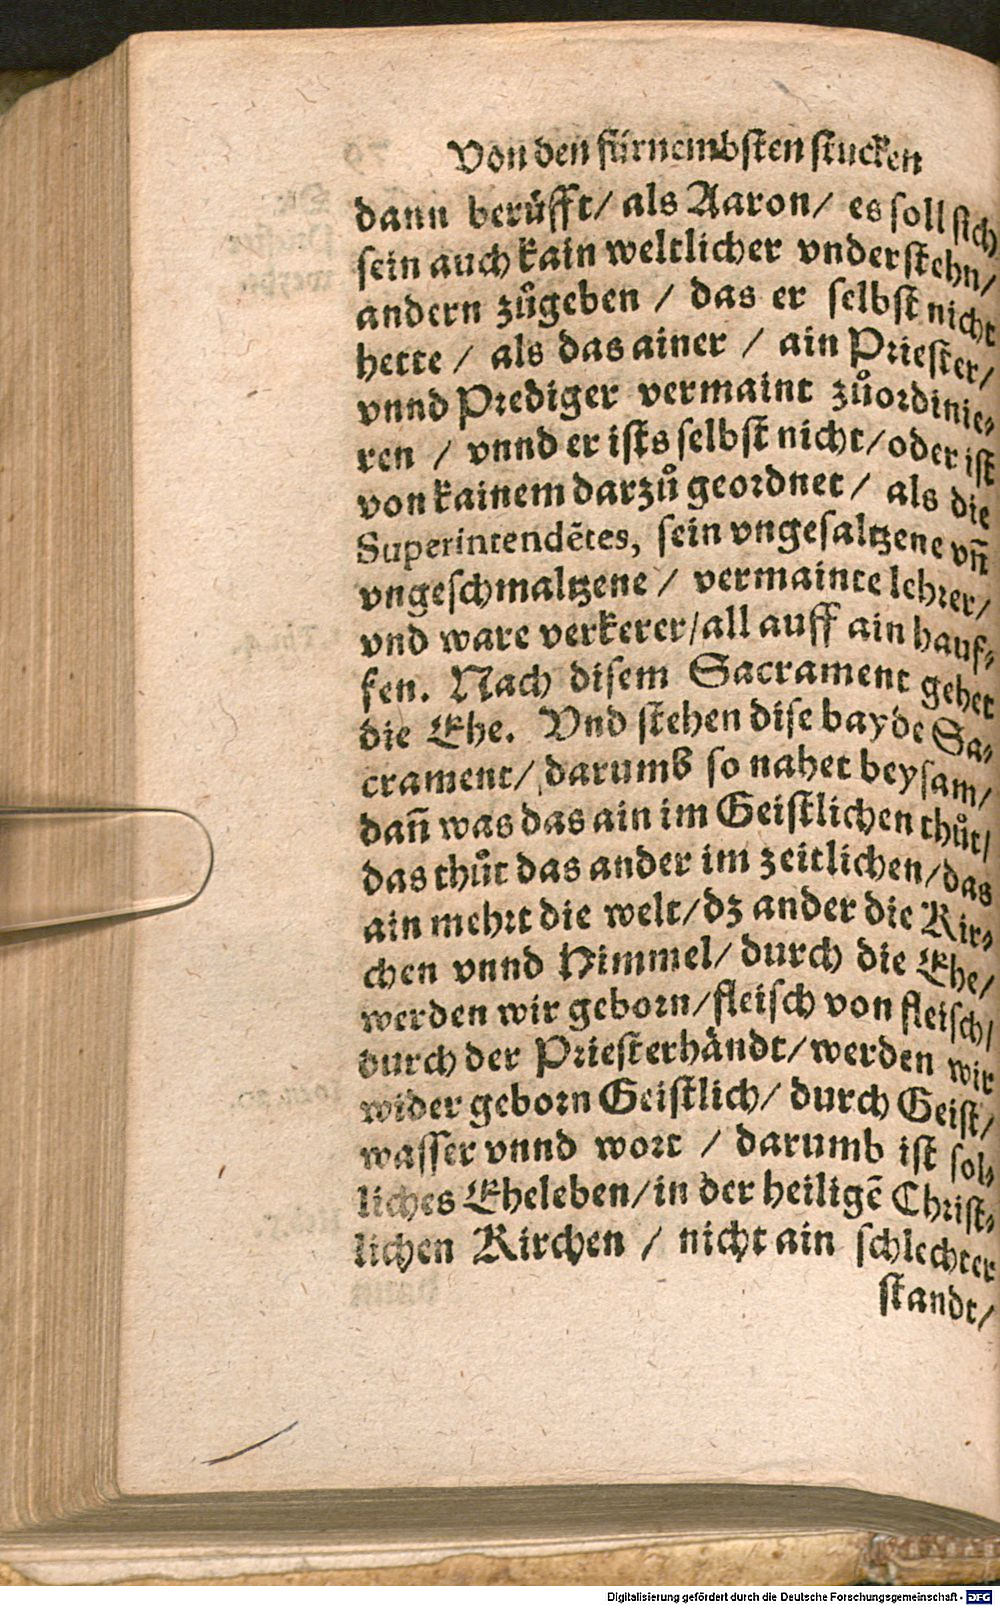 Von den fürnembsten stucken
dann berüfft/ als Aaron/ es soll sich
sein auch kain weltlicher vnderstehn/
andern zůgeben / das er selbst nicht
hette / als das ainer / ain Priester/
vnnd Prediger vermaint zůordinie⸗
ren / vnnd er ists selbst nicht/ oder ist
von kainem darzů geordnet / als die
Superintendētes, sein vngesaltzene vn̄
vngeschmaltzene / vermainte lehrer/
vnd ware verkerer/all auff ain hauf⸗
fen. Nach disem Sacrament gehet
die Ehe. Vnd stehen dise bayde Sa⸗
crament/ darumb so nahet beysam/
dan̄ was das ain im Geistlichen thůt/
das thůt das ander im zeitlichen/das
ain mehrt die welt/dz ander die Kir⸗
chen vnnd Himmel/ durch die Ehe/
werden wir geborn/fleisch von fleisch/
durch der Priesterhändt/werden wir
wider geborn Geistlich/ durch Geist/
wasser vnnd wort / darumb ist sol⸗
liches Eheleben/in der heiligē Christ⸗
lichen Kirchen / nicht ain schlechter
standt/
Digitalisierung gefördert durch die Deutsche Forschungsgemeinschaft - DFG